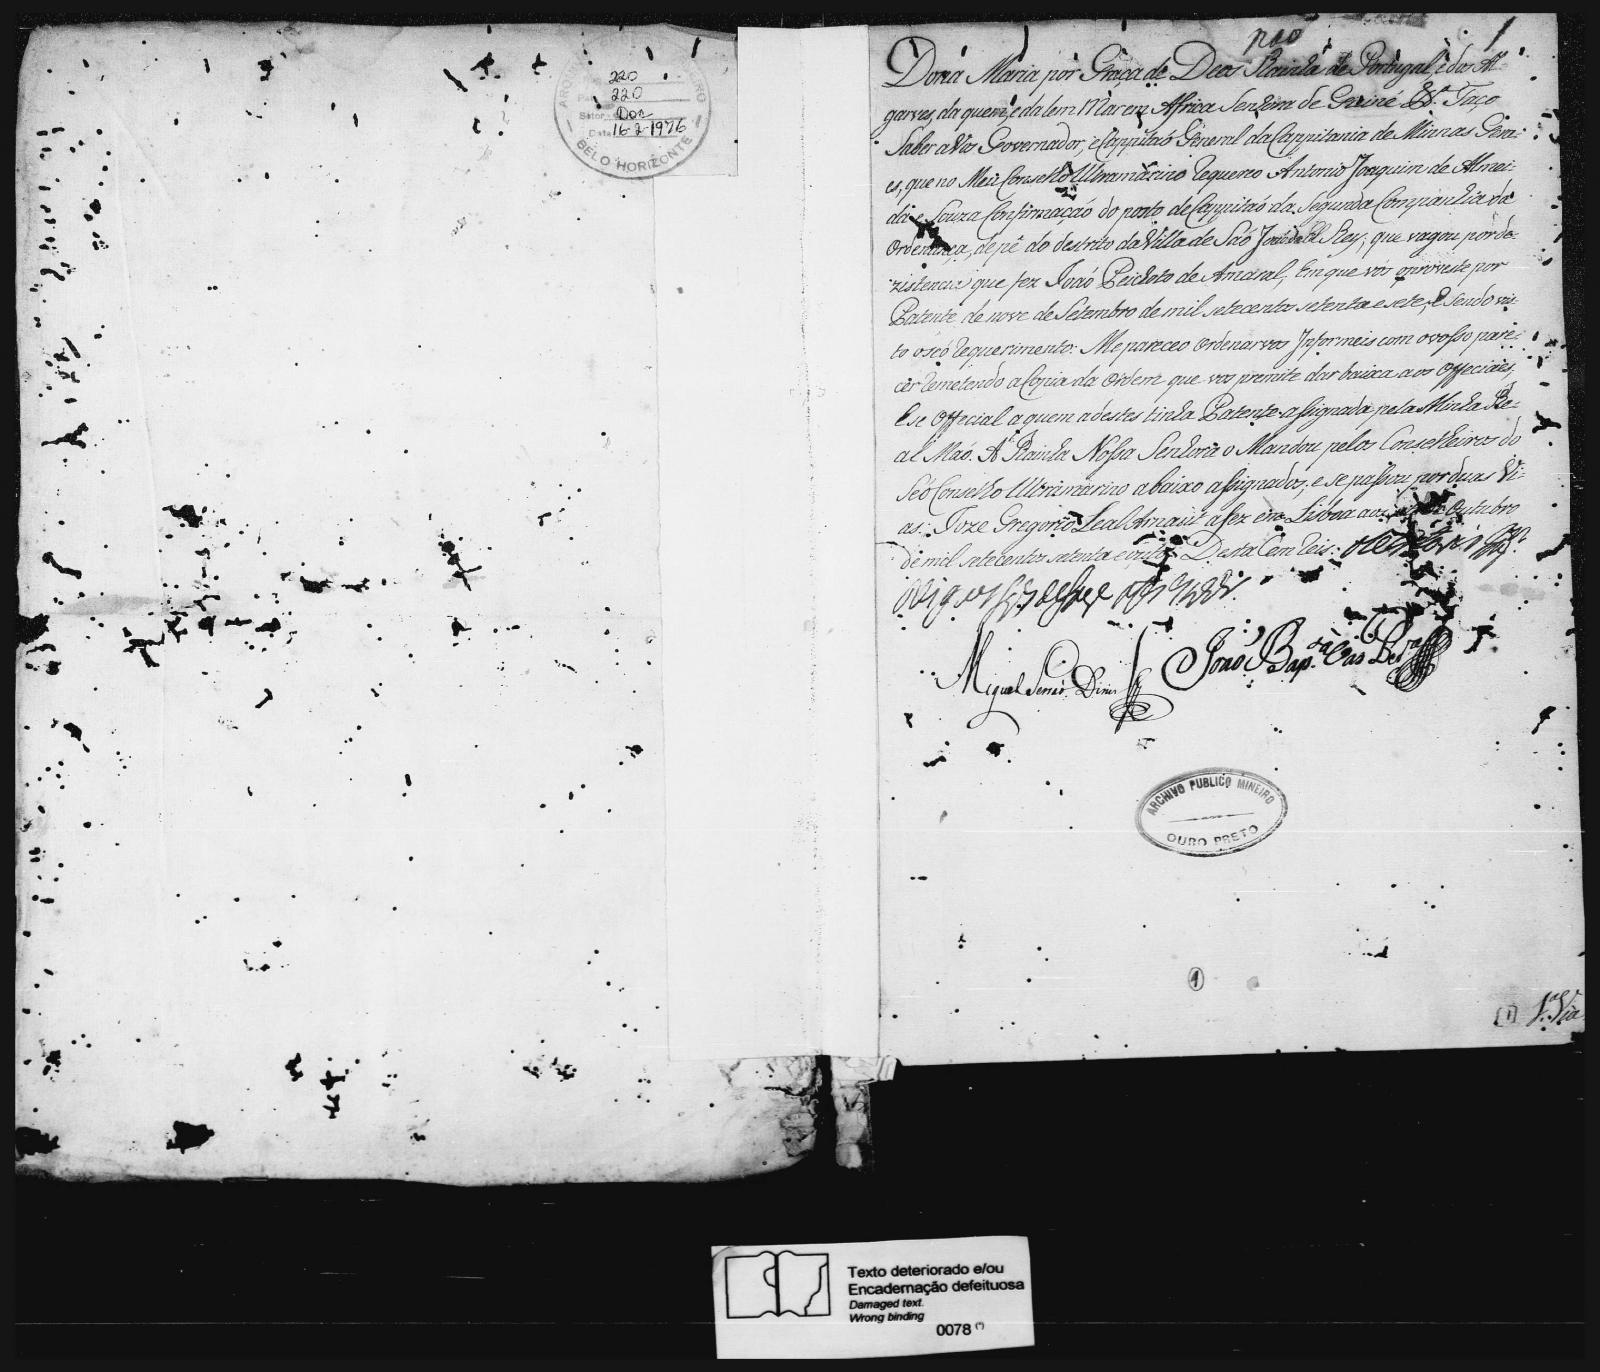 220
220
Setor Doc
Data 16-2-1976
BELO HORIZONTE
1
Dona Maria por Graça de Deos Rainha de Portugal, e dos Al-
garves, da quem, e dalem Mar em Africa Senhora de Guiné &ª. Faço
Saber a Vós Governador, e Cappitaõ General da Cappitania de Minnas Gera-
es, que no Meu Conselho Ultramarino Requereo Antonio Joaquim de Almei-
da e Souza Confirmaçaõ do posto de Cappitaõ da Segunda Companhia da
Ordenança, de pé do destrito da Villa de Saõ Joze del Rey, que vagou por de-
zistencia que fez Joaõ Peichoto de Amaral, em que vós o proveste por
Patente de nove de Setembro de mil setecentos setenta e sete; E sendo vis-
to o seo Requerimento: Me pareceo Ordenarvos Informeis com o vosso pare-
cer Remetendo a Copia da Ordem que vos premite dar baixa aos Officiáes,
E se Official a quem a destes tinha Patente assignada pela Minha Re-
al Maõ. A Rainha Nossa Senhora o Mandou pelos Conselheiros do
Seo Conselho Ultramarino abaixo assignados, e se passou por duas Vi-
as. Joze Gregorio Leal Arnaut a fez em Lisboa aos Outubro
de mil setecentos setenta e oito. Desta Cem Reis.
Miguel Serraõ Diniz
Joaõ Bap.ta Vas Per.a
ARCHIVO PUBLICO MINEIRO
OURO PRETO
1
[1] 1.ª Via
Texto deteriorado e/ou
Encadernação defeituosa
Damaged text.
Wrong binding
0078 (*)